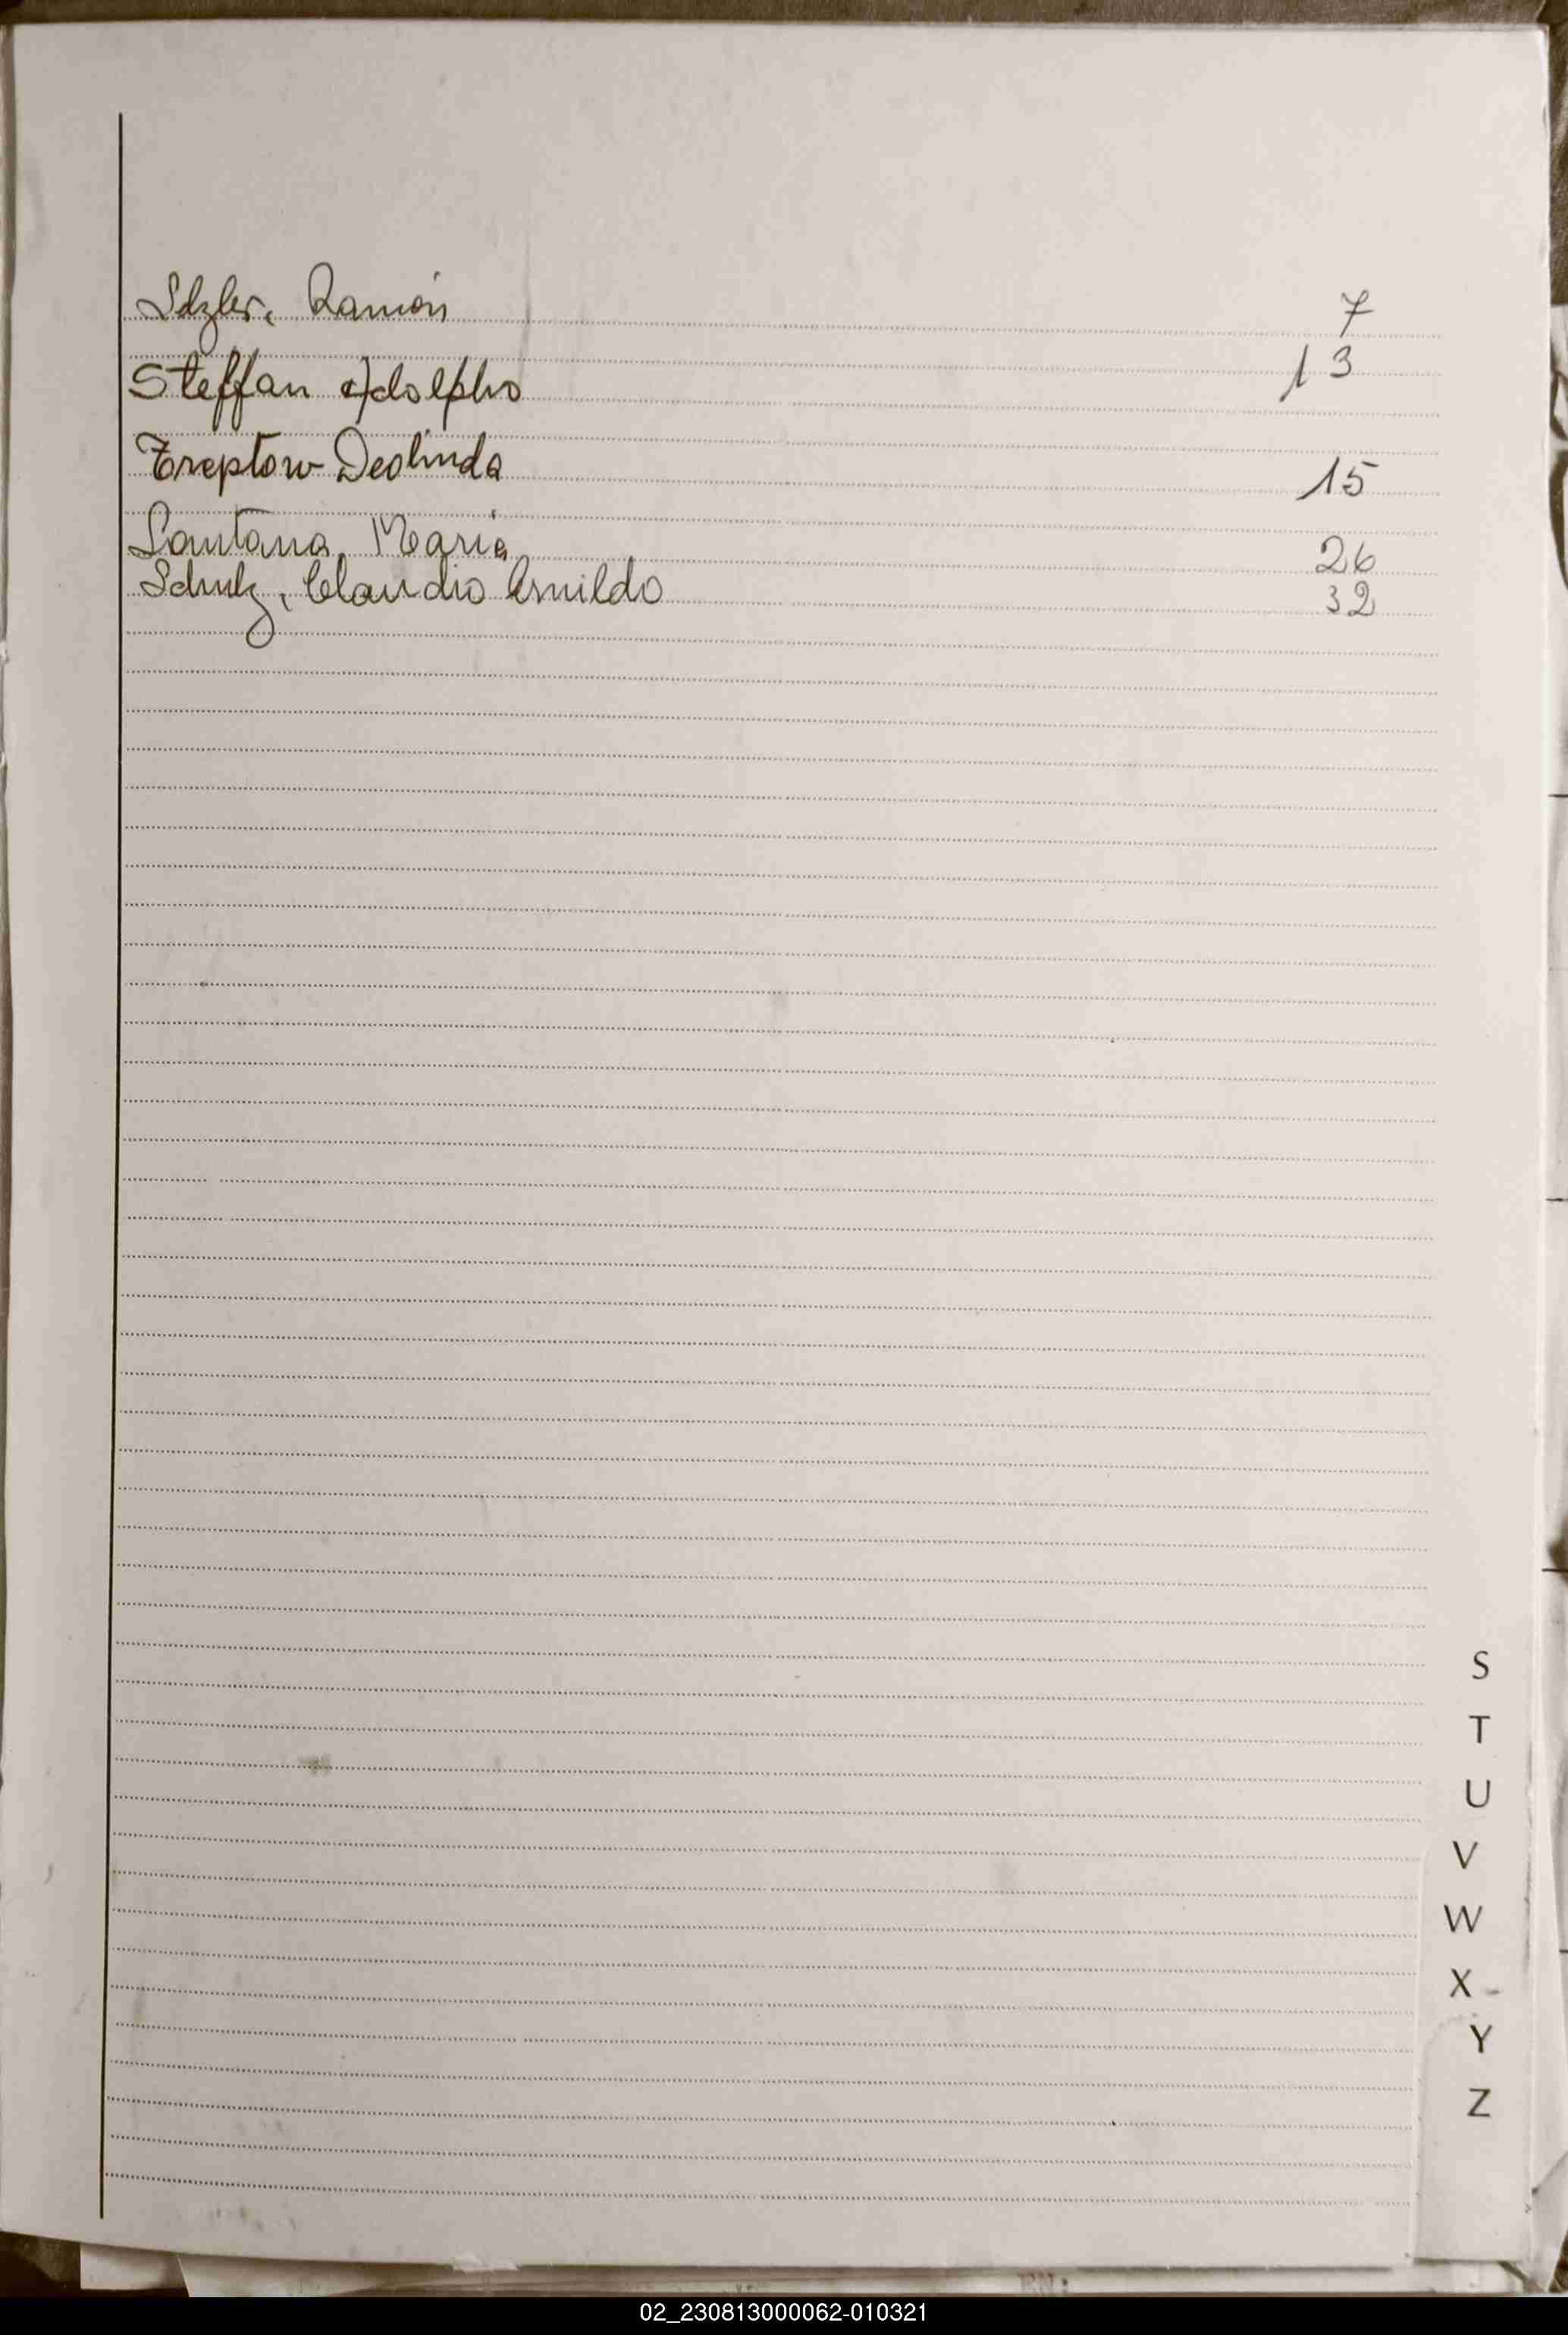 Ramón 7
Steffan Adolpho 13
Treptow Deolinda 15
Santana, Maria 26
Schulz, Claudio Ernildo 32
S
T
U
V
W
X
Y
Z
02_230813000062-010321